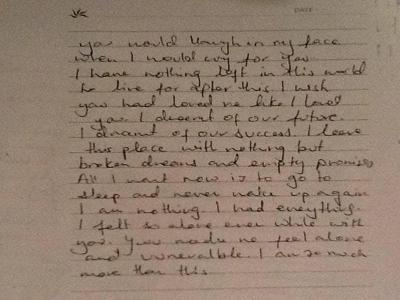 DATE
you would laugh in my face
when I would cry for you.
I have nothing left in this world
to live for after this I wish
you had loved me like I loved
you. I dreamt of our future.
I dreamt of our success. I leave
this place with nothing but
broken dreams and empty promises
All I want now is to go to
sleep and never wake up again
I am nothing. I had everything.
I felt so alone even while with
you. You made me feel alone
and vulnerable. I am so much
more than this